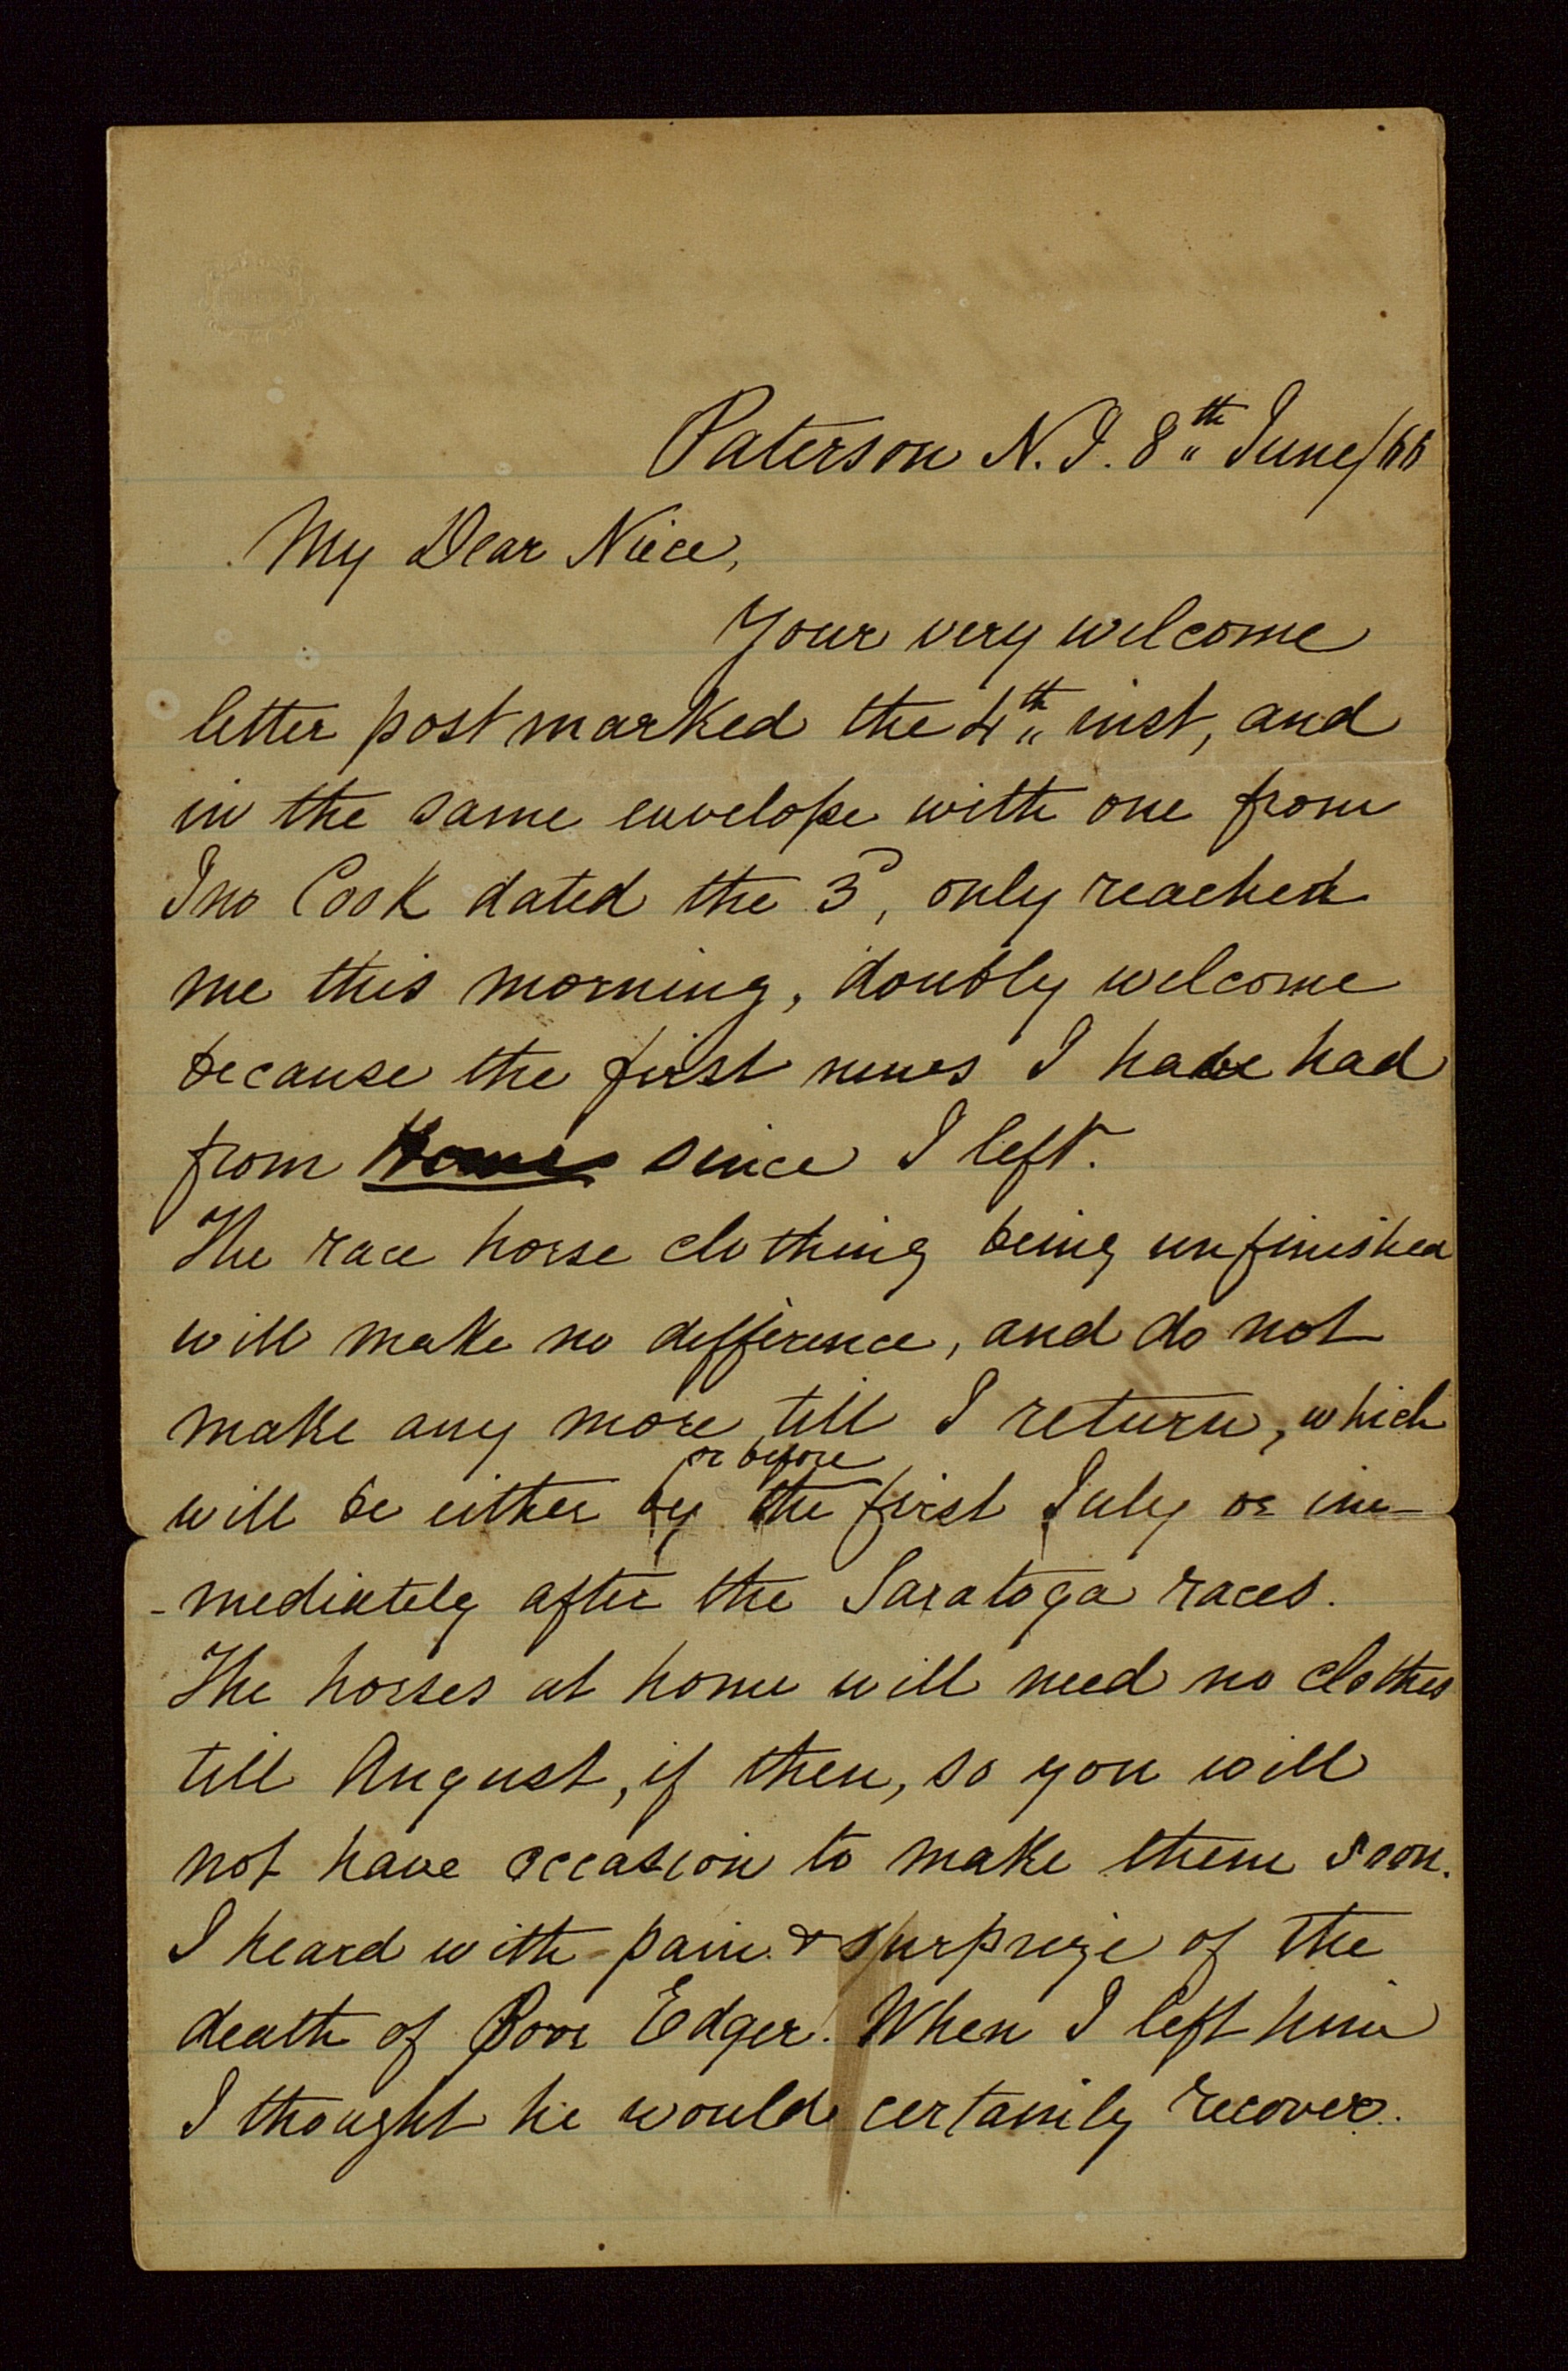 Paterson N.J. 8th June/66
My Dear Niece,
Your very welcome
letter post marked the 4th inst, and
in the same envelope with one from
Jno Cook dated the 3d, only reached
me this morning, doubly welcome
because the first news I have had
from Home since I left.
The race horse clothing being unfinished
will make no difference, and do not
make any more till I return, which
or before
will be either by the first July or im-
-mediately after the Saratoga races.
The horses at home will need no clothes
till August, if then, so you will
not have occasion to make them soon.
I heard with pain & surprize of the
death of Poor Edger. When I left him
I thought he would certainly recover.